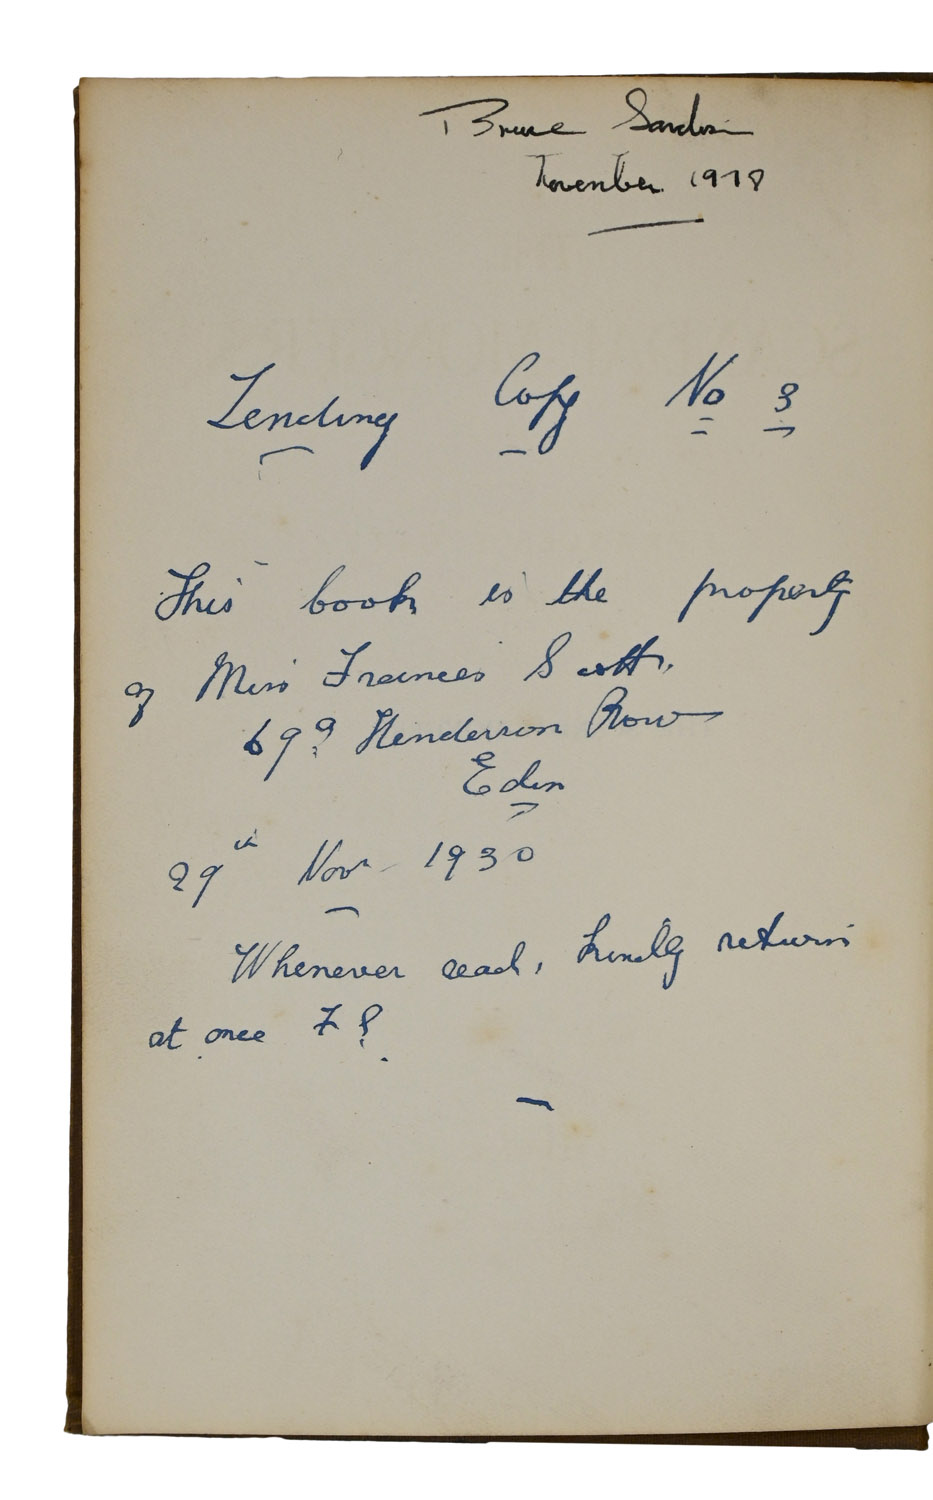 Bruce
November 1978
Lending Copy No 3
This book is the property
of Miss Frances Scott.
69a Henderson Row
Edin
29th Novr 1930
Whenever read, kindly return
at once F